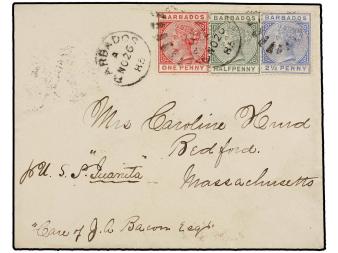 BARBADOS BARBADOS BARBADOS
ONE PENNY HALFPENNY 2½ PENNY
BARBADOS
NO 26
Mrs Caroline Hurd
Bedford.
Massachusetts
pr U. S. S. "Juanita"
"Care of J. A. Bacon Esqr"